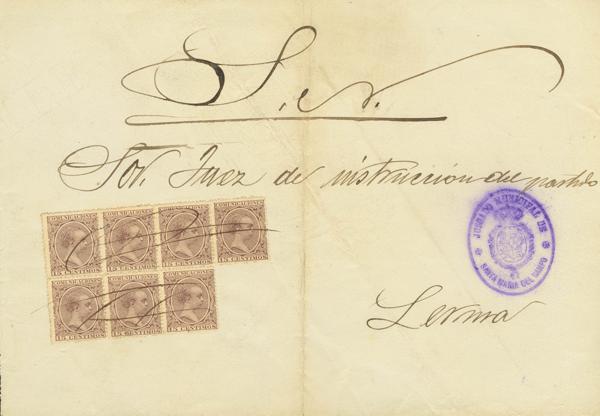 S. N.
Sor. Juez de instrucción del partido
COMUNICACIONES COMUNICACIONES COMUNICACIONES COMUNICACIONES
15 CENTIMOS 15 CENTIMOS 15 CENTIMOS 15 CENTIMOS
COMUNICACIONES COMUNICACIONES COMUNICACIONES
15 CENTIMOS 15 CENTIMOS 15 CENTIMOS
JUZGADO MUNICIPAL DE
SANTA MARIA DEL CAMPO
Lerma